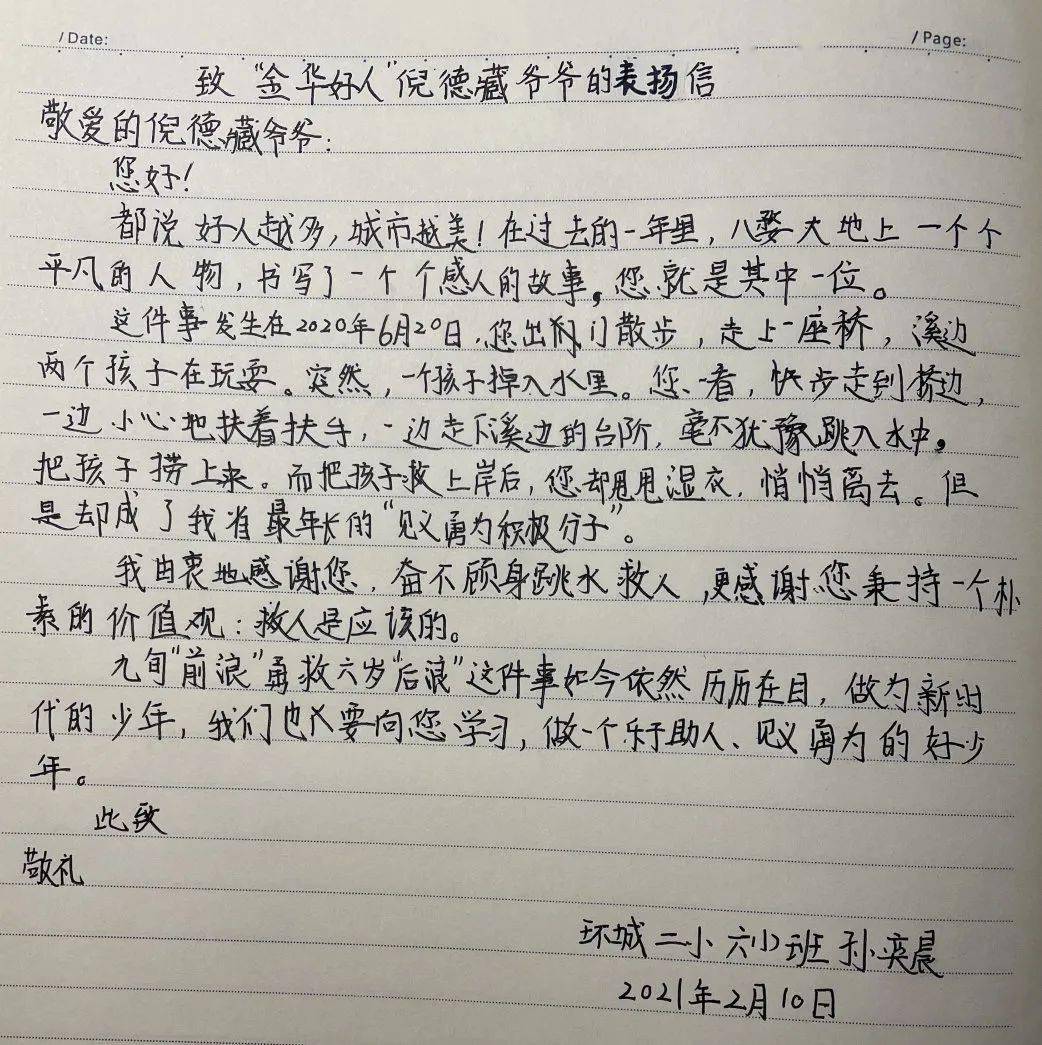 / Date:
/ Page:
致“金华好人”倪德藏爷爷的表扬信
敬爱的倪德藏爷爷：
您好！
都说好人越多，城市越美！在过去的一年里，八婺大地上一个个
平凡的人物，书写了一个个感人的故事。您就是其中一位。
这件事发生在2020年6月20日，您出门散步，走上一座桥，溪边
两个孩子在玩耍。突然，一个孩子掉入水里。您一看，快步走到桥边，
一边小心地扶着扶手，一边走下溪边的台阶，毫不犹豫跳入水中。
把孩子捞上来。而把孩子救上岸后，您却甩甩湿衣，悄悄离去。但
是却成了我省最年长的“见义勇为积极分子”。
我由衷地感谢您，奋不顾身跳水救人，更感谢您秉持一个朴
素的价值观：救人是应该的。
九旬“前浪”勇救六岁“后浪”这件事如今依然历历在目，做为新时
代的少年，我们也要向您学习，做一个乐于助人、见义勇为的好少
年。
此致
敬礼
环城二小 六(1)班 孙奕晨
2021年2月10日